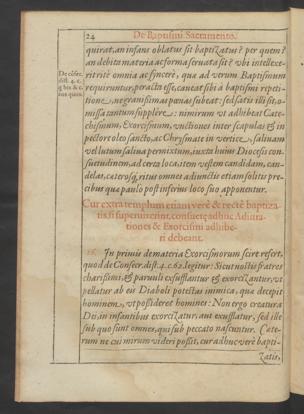 24
De Baptismi Sacramento.
quirat, an infans oblatus sit baptizatus? per quem?
an debita materia ac forma servata sit? vbi intellexe-
De cōsec. dist. 4. c.
rit ritè omnia ac syncerè, qua ad verum Baptismum
requiruntur, peracta esse, caueat sibi à baptismi repeti-
tione, ne gravissimas pœnas subeat: sed satis illi sit, o-
missa tantum supplere: nimirum vt adhibeat Cate-
chismum, Exorcismum, vnctiones inter scapulas & in
pectore oleo sancto, ac Chrysmate in vertice, salivam
vel lutum saliva permixtum, iuxta huius Diocesis con-
suetudinem, ad certa loca, item vestem candidam, can-
delas, caterosq́; ritus omnes adiunctis etiam solitis pre-
cibus qua paulo post inferius loco suo apponentur.
Cur extra templum etiam verè & rectè baptiza-
tis, si supervixerint, consuetę adhuc Adiura-
tiones & Exorcismi adhibe-
ri debeant.
In primis de materia Exorcismorum scire refert,
quod de Consecr. dist. 4. c. 62. legitur: Sicut nostis fratres
charissimi, & parvuli exsufflantur & exorcizantur, vt
pellatur ab eis Diaboli potestas inimica, qua decepit
hominem, vt possideret homines: Non ergo creatura
Dei, in infantibus exorcizatur, aut exsufflatur, sed ille
sub quo sunt omnes, qui sub peccato nascuntur. Cate-
rum ne cui mirum videri possit, cur adhuc verè bapti-
zatis,